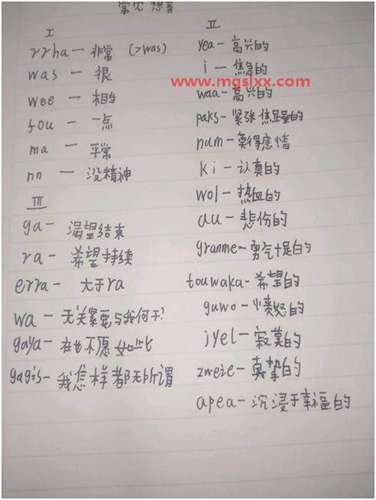 常见想音
I
rrha — 非常 (>was)
was — 很
wee — 相当
fou — 一点
ma — 平常
nn — 没精神
III
ga — 渴望结束
ra — 希望持续
erra — 大于ra
wa — 无关紧要与我何干?
gaya — 在也不愿如此
gagis — 我怎样都无所谓
II
yea — 高兴的
i — 焦虑的
www.mgslxx.com
waa — 高兴的
paks — 紧张焦虑的
num — 莫得感情
ki — 认真的
wol — 热血的
au — 悲伤的
granme — 勇气十足的
touwaka — 希望的
guwo — 愤怒的
jyel — 寂寞的
zweie — 真挚的
apea — 沉浸于幸福的